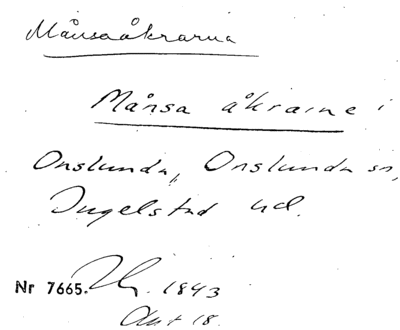 Månsaåkrarna
Månsa åkrarne i
Onslunda, Onslunda sn,
Ingelstad hd.
Nr 7665. 1843
Akt 18.